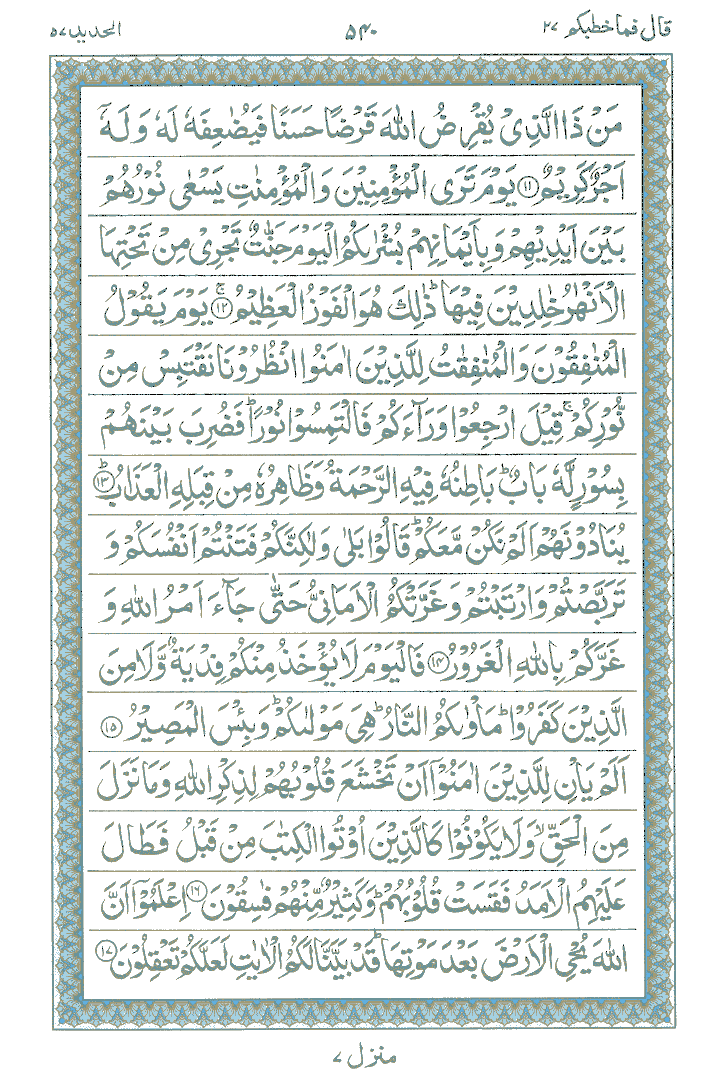 قال فما خطبكم ۲۷
۵۴۰
الحديد ۵۷
مَنْ ذَا الَّذِىْ يُقْرِضُ اللّٰهَ قَرْضًا حَسَنًا فَيُضٰعِفَهٗ لَهٗ وَ لَهٗۤ
اَجْرٌ كَرِيْمٌ ۝۱۱ يَوْمَ تَرَى الْمُؤْمِنِيْنَ وَالْمُؤْمِنٰتِ يَسْعٰى نُوْرُهُمْ
بَيْنَ اَيْدِيْهِمْ وَبِاَيْمَانِهِمْ بُشْرٰىكُمُ الْيَوْمَ جَنّٰتٌ تَجْرِىْ مِنْ تَحْتِهَا
الْاَنْهٰرُ خٰلِدِيْنَ فِيْهَا ؕ ذٰلِكَ هُوَ الْفَوْزُ الْعَظِيْمُ ۝۱۲ۚ يَوْمَ يَقُوْلُ
الْمُنٰفِقُوْنَ وَالْمُنٰفِقٰتُ لِلَّذِيْنَ اٰمَنُوا انْظُرُوْنَا نَقْتَبِسْ مِنْ
نُّوْرِكُمْ ۚ قِيْلَ ارْجِعُوْا وَرَآءَكُمْ فَالْتَمِسُوْا نُوْرًا ؕ فَضُرِبَ بَيْنَهُمْ
بِسُوْرٍ لَّهٗ بَابٌ ؕ بَاطِنُهٗ فِيْهِ الرَّحْمَةُ وَظَاهِرُهٗ مِنْ قِبَلِهِ الْعَذَابُ ؕ۝۱۳
يُنَادُوْنَهُمْ اَلَمْ نَكُنْ مَّعَكُمْ ؕ قَالُوْا بَلٰى وَلٰكِنَّكُمْ فَتَنْتُمْ اَنْفُسَكُمْ وَ
تَرَبَّصْتُمْ وَارْتَبْتُمْ وَغَرَّتْكُمُ الْاَمَانِىُّ حَتّٰى جَآءَ اَمْرُ اللّٰهِ وَ
غَرَّكُمْ بِاللّٰهِ الْغَرُوْرُ ۝۱۴ فَالْيَوْمَ لَا يُؤْخَذُ مِنْكُمْ فِدْيَةٌ وَّلَا مِنَ
الَّذِيْنَ كَفَرُوْا ؕ مَاْوٰىكُمُ النَّارُ ؕ هِىَ مَوْلٰىكُمْ ؕ وَبِئْسَ الْمَصِيْرُ ۝۱۵
اَلَمْ يَاْنِ لِلَّذِيْنَ اٰمَنُوْۤا اَنْ تَخْشَعَ قُلُوْبُهُمْ لِذِكْرِ اللّٰهِ وَمَا نَزَلَ
مِنَ الْحَقِّ ۙ وَلَا يَكُوْنُوْا كَالَّذِيْنَ اُوْتُوا الْكِتٰبَ مِنْ قَبْلُ فَطَالَ
عَلَيْهِمُ الْاَمَدُ فَقَسَتْ قُلُوْبُهُمْ ؕ وَكَثِيْرٌ مِّنْهُمْ فٰسِقُوْنَ ۝۱۶ اِعْلَمُوْۤا اَنَّ
اللّٰهَ يُحْىِ الْاَرْضَ بَعْدَ مَوْتِهَا ؕ قَدْ بَيَّنَّا لَكُمُ الْاٰيٰتِ لَعَلَّكُمْ تَعْقِلُوْنَ ۝۱۷
منزل ۷